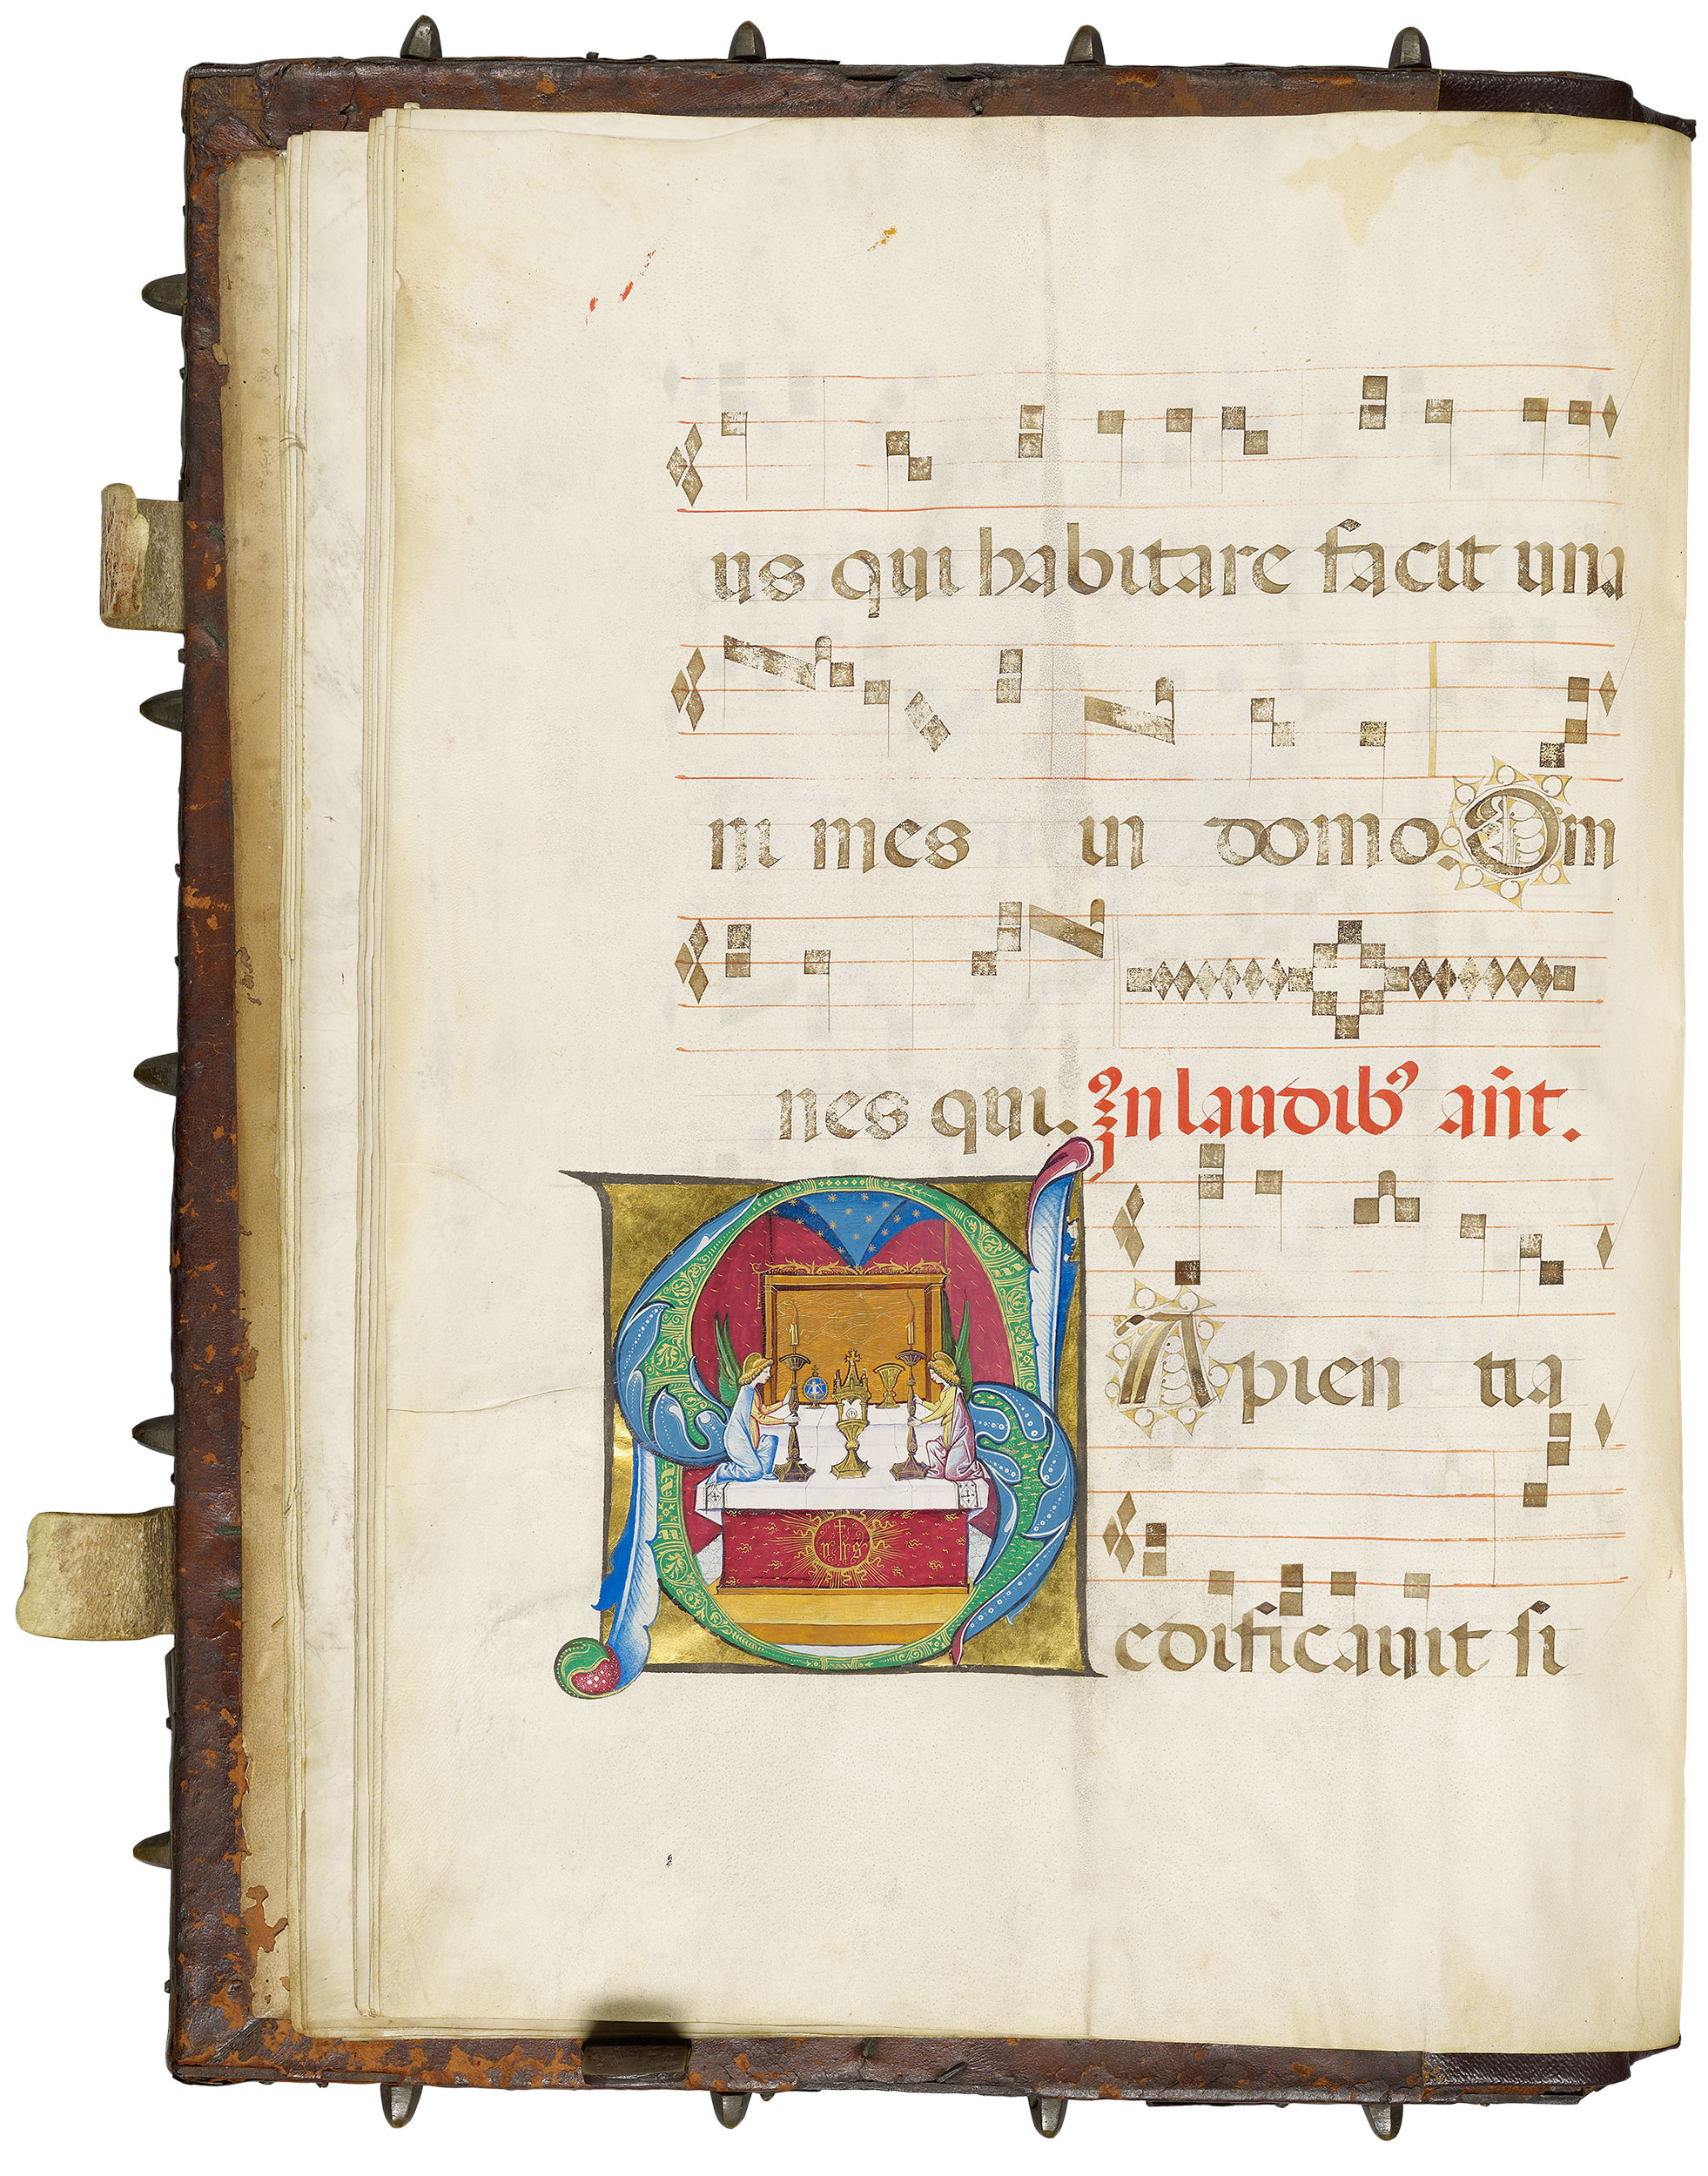 us qui habitare facit una
ni mes in domo. Om
nes qui. In laudibꝰ añt.
SApien tia
edificauit si
yhs